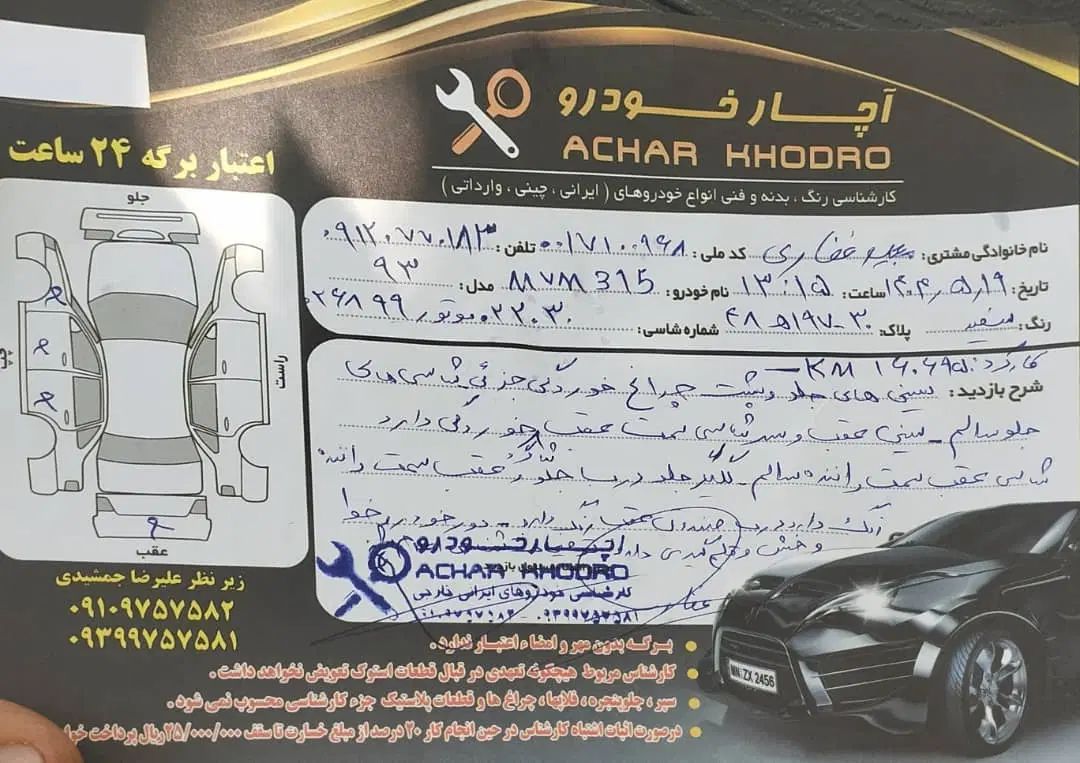 آچار خودرو
ACHAR KHODRO
کارشناسی رنگ ، بدنه و فنی انواع خودروهای ( ایرانی ، چینی ، وارداتی )
اعتبار برگه ۲۴ ساعت
جلو
راست
چپ
عقب
نام خانوادگی مشتری: غفاری کد ملی: ۰۰۱۷۱۰۰۹۶۸ تلفن: ۰۹۱۲۰۷۷۰۱۸۳
تاریخ: ۱۴۰۴/۵/۱۹ ساعت: ۱۳:۱۵ نام خودرو: MVM 315 مدل: ۹۳
رنگ: سفید پلاک: شماره شاسی: موتور
کارکرد: KM
شرح بازدید: سینی های جلو و پشت چراغ خوردگی جزئی شاسی های
جلو سالم - سینی عقب و سر شاسی سمت عقب خوردگی دارد
شاسی عقب سمت راننده سالم - گلگیر جلو درب جلو و عقب سمت راننده
رنگ دارد درب صندوق عقب رنگ دارد - دور خودرو خط
و خش و قلم گیری
آچار خودرو
ACHAR KHODRO
کارشناسی خودروهای ایرانی خارجی
۰۹۳۹۹۷۵۷۵۸۱
زیر نظر علیرضا جمشیدی
۰۹۱۰۹۷۵۷۵۸۲
۰۹۳۹۹۷۵۷۵۸۱
برگه بدون مهر و امضاء اعتبار ندارد .
کارشناس مربوط هیچگونه تعهدی در قبال قطعات استرک تعویضی نخواهد داشت .
سپر ، جلوپنجره ، قلابها، چراغ ها و قطعات پلاستیک جزء کارشناسی محسوب نمی شود .
درصورت اثبات اشتباه کارشناس در حین انجام کار ۲۰ درصد از مبلغ خسارت تا سقف ۲۵/۰۰۰/۰۰۰ریال پرداخت
MN:ZX 2456